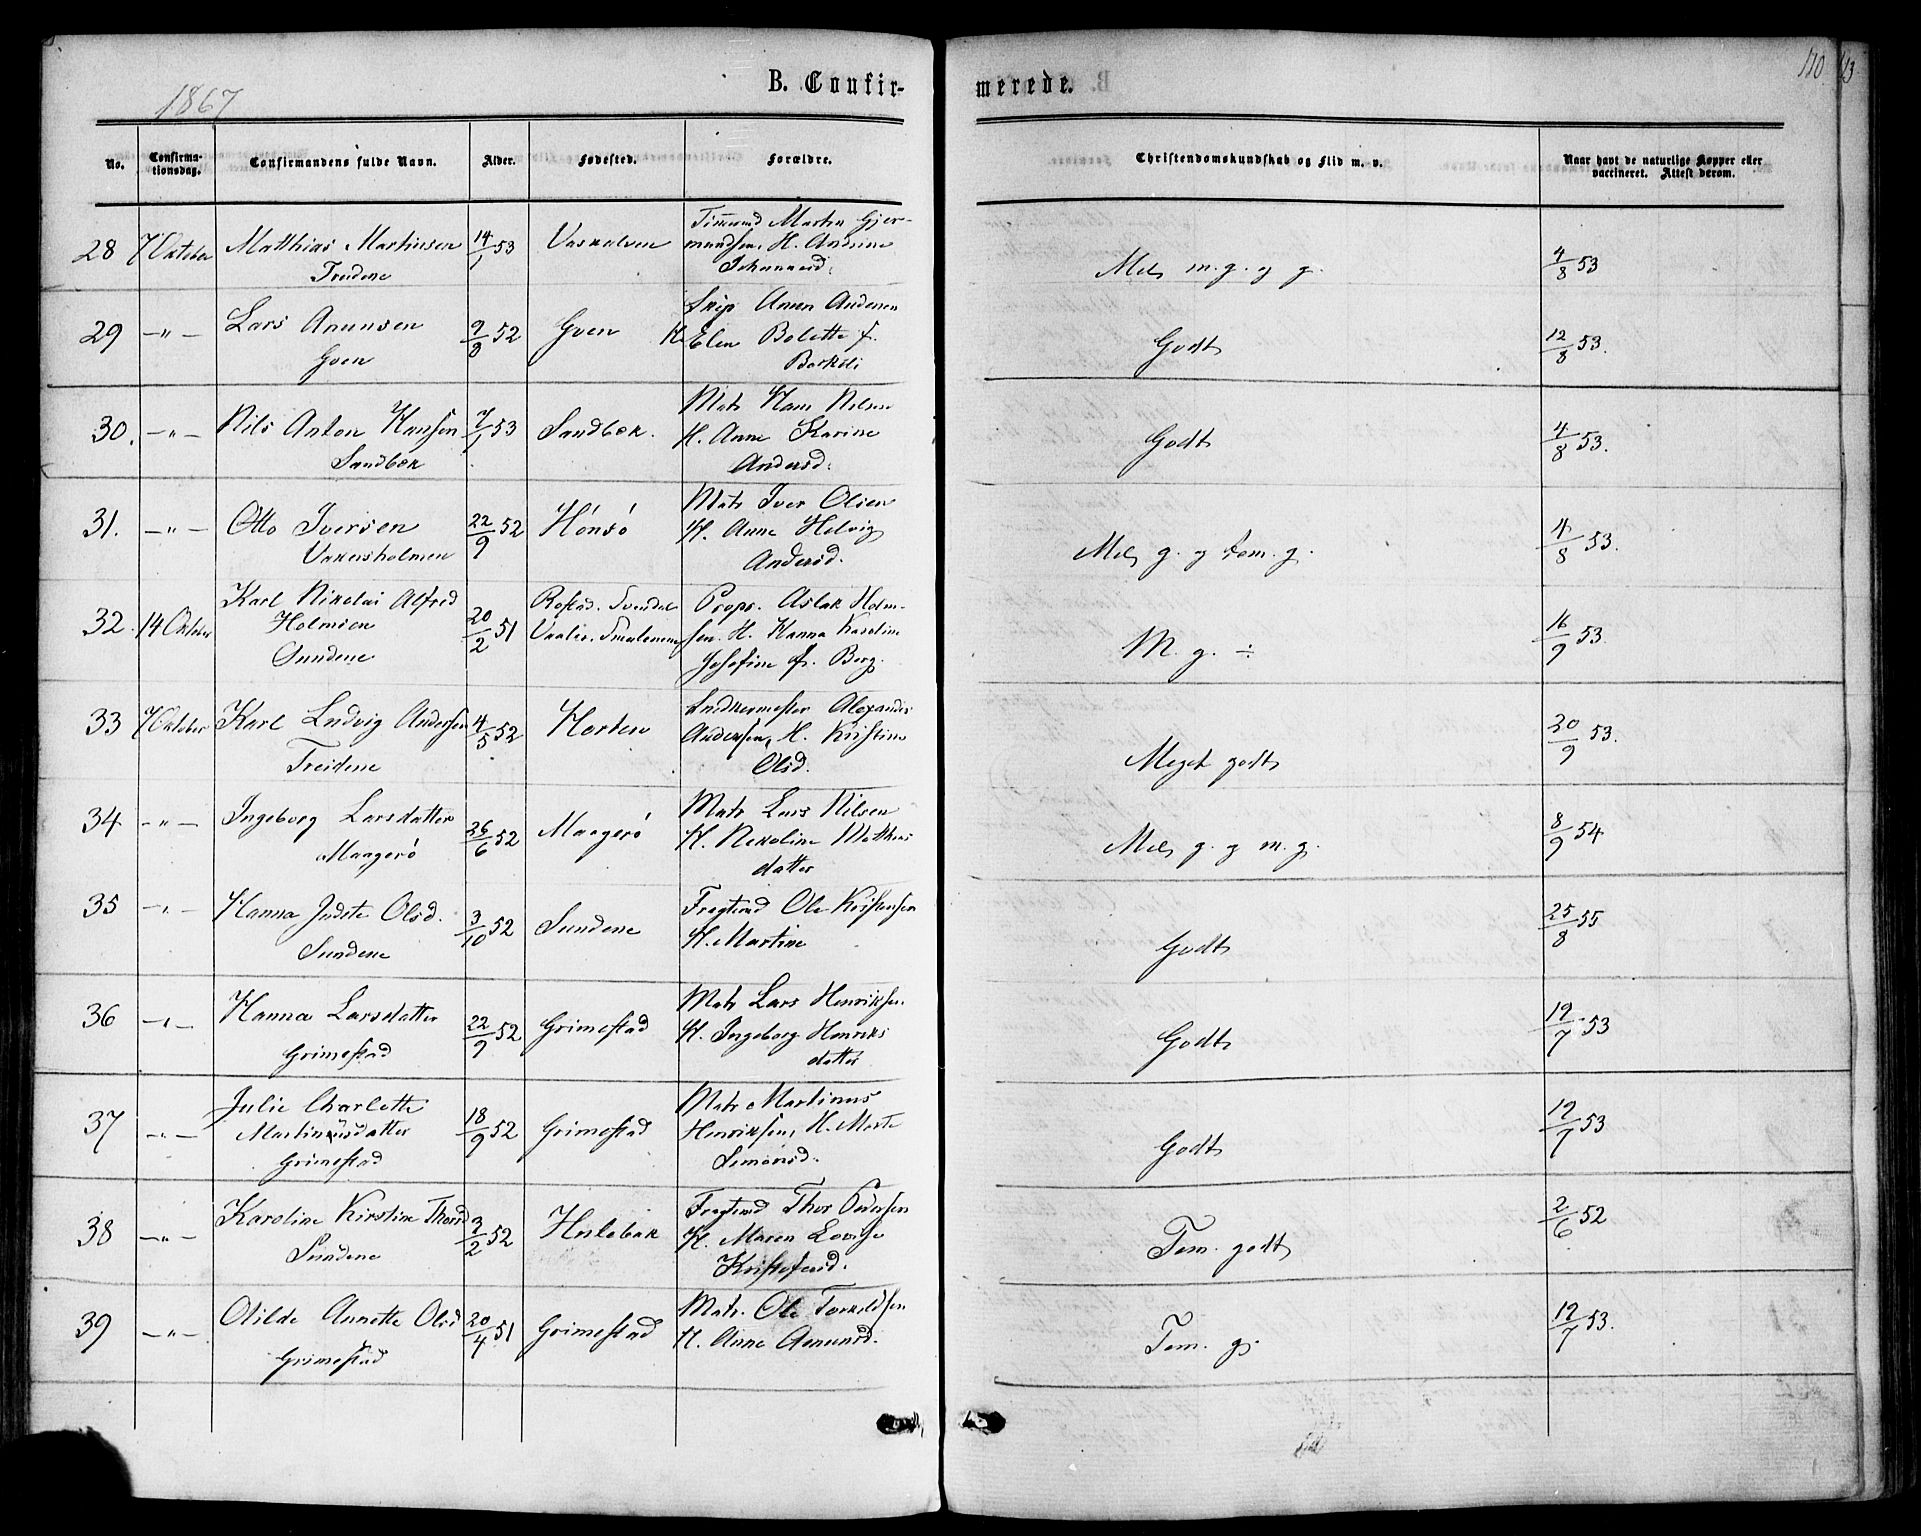 1867
B. Confir-
merede.
110
No.
Confirma-
tionsdag.
Confirmandens fulde Navn.
Alder.
Fødested.
Forældre.
Christendomskundskab og Flid m. v.
Naar havt de naturlige Kopper eller
vaccineret. Attest derom.
28 7 Oktober Matthias Martinsen 14/1 53 Martin Gjer-
mundsen, H. Andrine
Treidene
Johannesd.
Mel m. g. og g. 4/8 53
29 -"- Lars Anunsen 9/8 52 Goen
Goen
Anun Andersen
H. Elen Bolette f.
Godt 12/8 53.
30. -"- Nils Anton Hansen 7/1 53 Sandbæk.
Sandbæk
Matr Hans Nilsen
H. Anne Karine
Andersd.
Godt 4/8 53.
31. -"- Otto Iversen 22/9 52 Hönsö
Vakersholmen
Matr Iver Olsen
H. Anne Helvig
Andersd.
Mel g. og tem. g. 4/8 53.
32. 14 Oktober Karl Nikolai Alfred
Holmsen 20/2 51
Sundene
Rostad. Svendal
Vaaler. Smaalenene
Propr. Aslak Holm-
sen. H. Hanna Karoline
Josefine f. Berg.
M. g. ÷ 16/9 53.
33 7 Oktober Karl Ludvig Andersen 4/5 52 Horten
Treidene
Snedkermester Alexander
Andersen, H. Kristine
Olsd.
Meget godt 20/9 53.
34 -"- Ingeborg Larsdatter 26/6 52 Maagerö
Maagerö
Matr Lars Nilsen
H. Nikoline Mathias
datter
Mel g. og m. g. 8/9 54
35 -"- Hanna Olsd. 3/10 52 Sundene
Sundene
Fragtmd Ole Kristensen
H. Martine
Godt 25/8 55
36 -"- Hanna Larsdatter 22/9 52 Grimestad
Grimestad
Matr Lars Henriksen.
H. Ingeborg Henriks
datter
Godt 19/7 53
37 -"- Julie Charlotte
Martinusdatter 18/9 52 Grimestad
Grimestad
Matr Martinus
Henriksen, H. Marte
Simonsd.
Godt 19/7 53
38 -"- Karoline Kirstine Thorsd 3/2 52
Sundene
Fragtmd Thor Pedersen
H. Maren Lovise
Kristofersd.
Tem. godt 2/6 52
39 -"- Olilde Annette Olsd 20/4 51 Grimestad
Grimestad
Matr. Ole Torkildsen
H. Anne Amundsd.
Tem. g. 19/7 53.